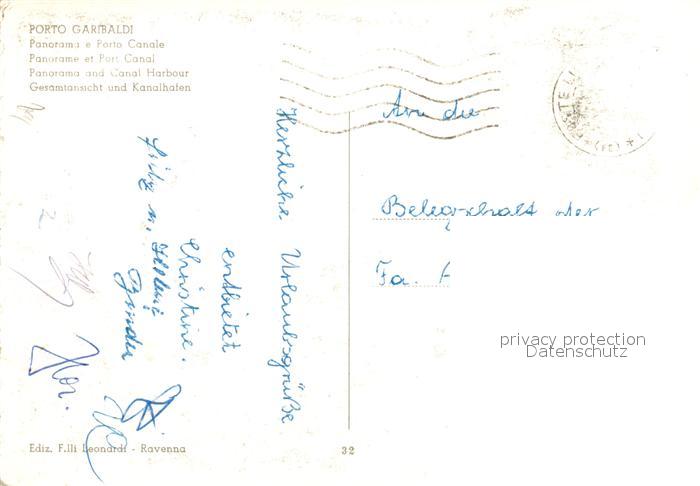 PORTO GARIBALDI
Panorama e Porto Canale
Panorame et Port Canal
Panorama and Canal Harbour
Gesamtansicht und Kanalhafen
Herzliche Urlaubsgrüße
entbietet
Christine.
Fritz u.
An die
Belegschaft der
Fa.
privacy protection
Datenschutz
Ediz. F.lli Leonardi - Ravenna
32